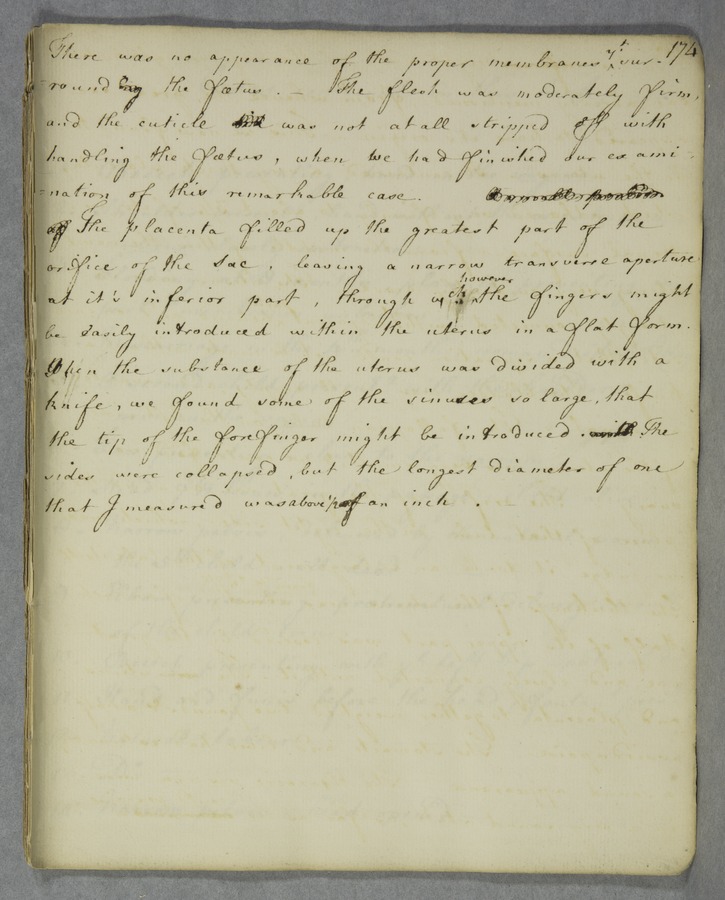 174
There was no appearance of the proper membranes yt. sur-
-rounding the fœtus. – The flesh was moderately firm,
and the cuticle was not at all stripped off with
handling the fœtus, when we had finished our exami-
-nation of this remarkable case.
The placenta filled up the greatest part of the
orifice of the sac, leaving a narrow transverse aperture
at it's inferior part, through wch however the fingers might
be easily introduced within the uterus in a flat form.
When the substance of the uterus was divided with a
knife, we found some of the sinuses so large, that
the tip of the forefinger might be introduced. The
sides were collapsed, but the longest diameter of one
that I measured was above 1/2 of an inch.